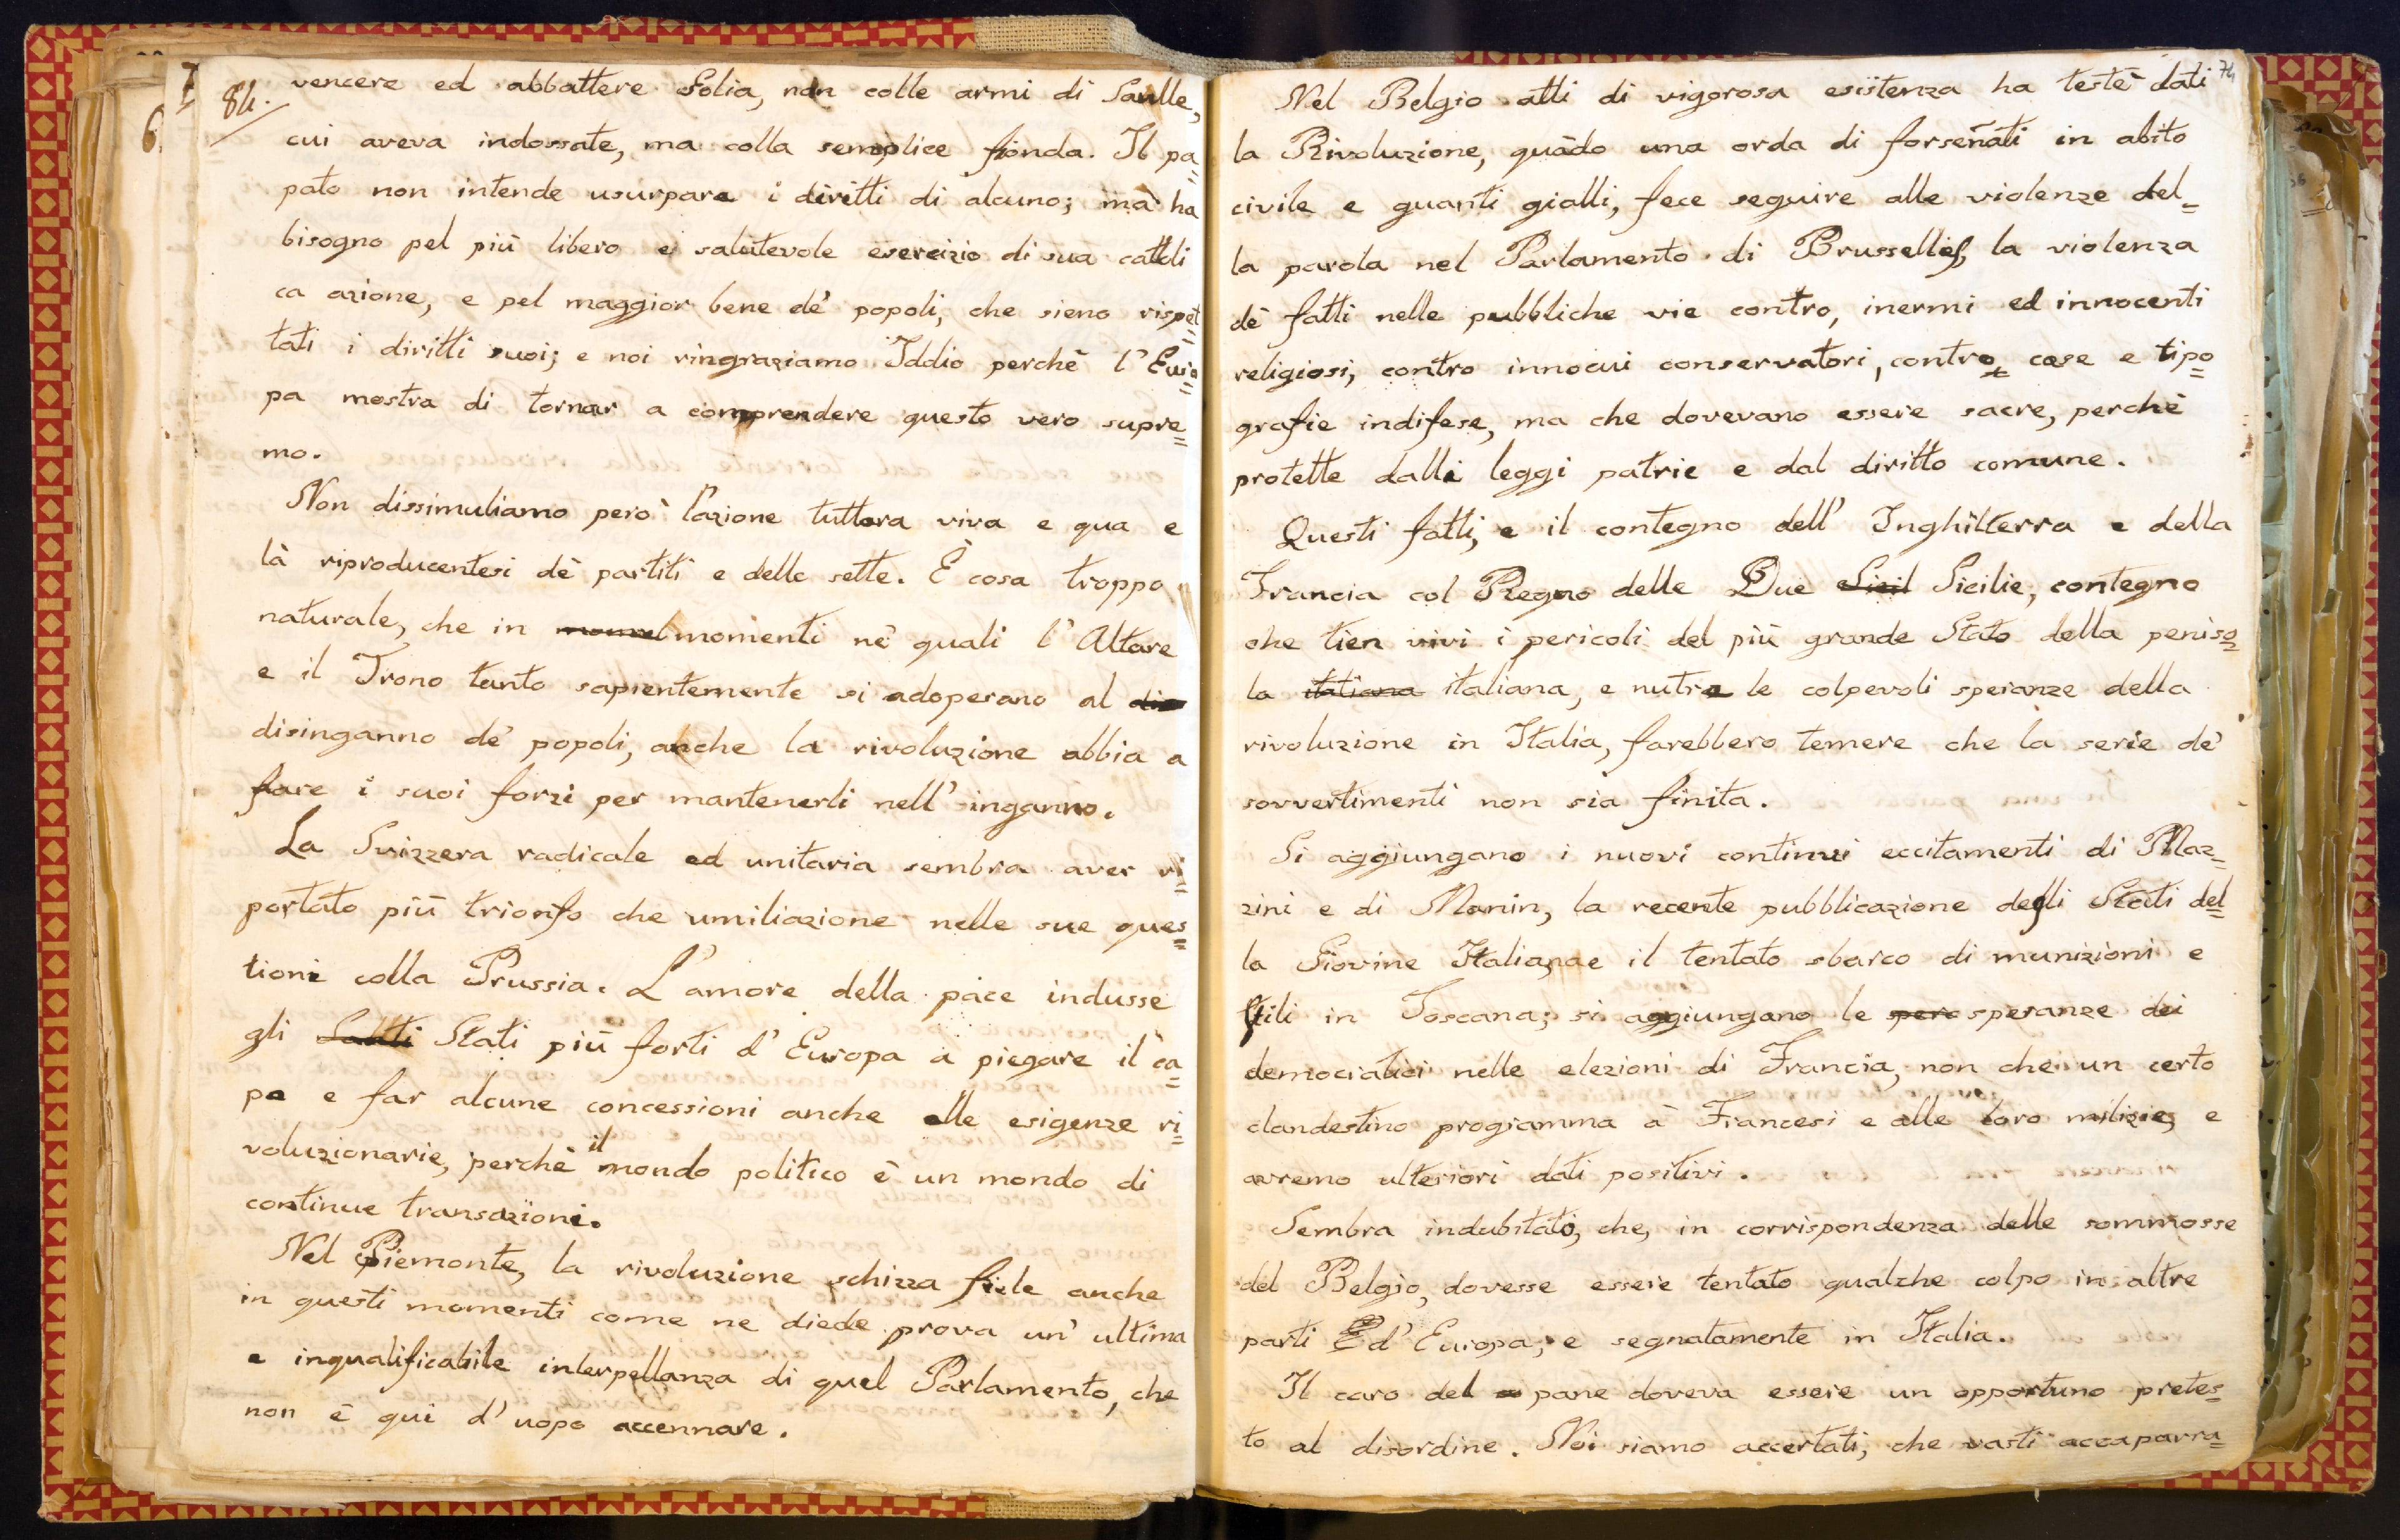 84.
vencere ed abbattere Golia, non colle armi di Saulle,
cui aveva indossate, ma colla semplice fionda. Il pa=
pato non intende usurpare i diritti di alcuno; ma ha
bisogno pel più libero e salutevole esercizio di sua cattoli
ca azione, e pel maggior bene de' popoli, che sieno rispet=
tati i diritti suoi; e noi ringraziamo Iddio perchè l'Euro=
pa mostra di tornar a comprendere questo vero supre=
mo.
Non dissimuliamo però l'azione tuttora viva e qua e
là riproducentesi de' partiti e delle sette. È cosa troppo
naturale, che in momenti ne' quali l'Altare
e il Trono tanto sapientemente si adoperano al dis
disinganno de' popoli, anche la rivoluzione abbia a
fare i suoi forzi per mantenerli nell'inganno.
La Svizzera radicale ed unitaria sembra aver ri=
portato più trionfo che umiliazione nelle sue ques=
tioni colla Prussia. L'amore della pace indusse
gli Stati più forti d'Europa a piegare il ca=
po e far alcune concessioni anche alle esigenze ri=
voluzionarie, perchè il mondo politico è un mondo di
continue transazioni.
Nel Piemonte, la rivoluzione schizza fiele anche
in questi momenti come ne diede prova un'ultima
e inqualificabile interpellanza di quel Parlamento, che
non è qui d'uopo accennare.
74
Nel Belgio atti di vigorosa esistenza ha testè dati
la Rivoluzione, quãdo una orda di forseñati in abito
civile e guanti gialli, fece seguire alle violenze del=
la parola nel Parlamento di Brusselles, la violenza
de' fatti nelle pubbliche vie contro, inermi ed innocenti
religiosi, contro innocui conservatori, contro case e tipo=
grafie indifese, ma che dovevano essere sacre, perchè
protette dalle leggi patrie e dal diritto comune.
Questi fatti, e il contegno dell'Inghilterra e della
Francia col Regno delle Due Sicil Sicilie, contegno
che tien vivi i pericoli del più grande Stato della peniso=
la italiana italiana, e nutre le colpevoli speranze della
rivoluzione in Italia, farebbero temere che la serie de'
sovvertimenti non sia finita.
Si aggiungano i nuovi continui eccitamenti di Maz=
zini e di Manin, la recente pubblicazione degli Stati del=
la Giovine Italia, e il tentato sbarco di munizioni e
stili in Toscana; si aggiungano le pere speranze dei
democratici nelle elezioni di Francia, non che un certo
clandestino programma a' Francesi e alle loro milizie, e
avremo ulteriori dati positivi.
Sembra indubitato, che, in corrispondenza delle sommosse
del Belgio, dovesse essere tentato qualche colpo in altre
parti E d'Europa, e segnatamente in Italia.
Il caro del pane doveva essere un opportuno pretes=
to al disordine. Noi siamo accertati, che vasti accaparra=